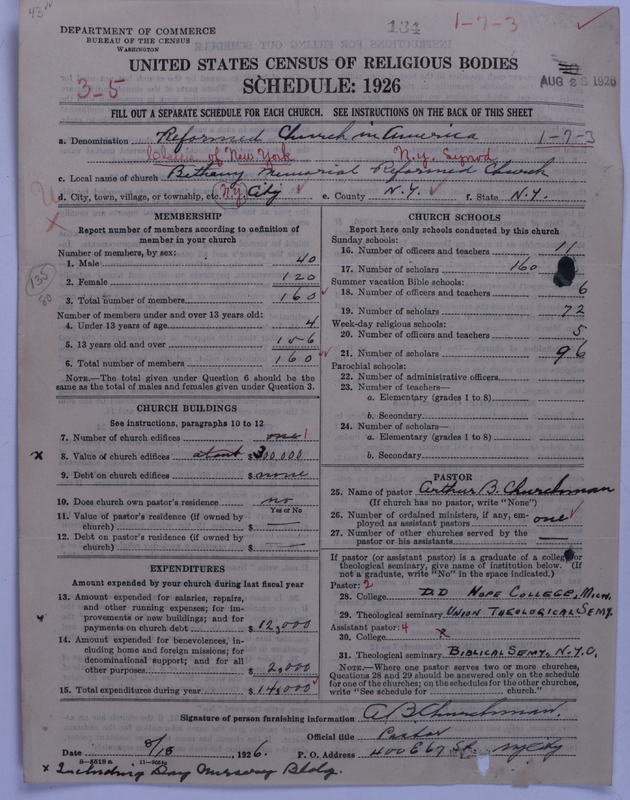 43
DEPARTMENT OF COMMERCE
BUREAU OF THE CENSUS
WASHINGTON
134
1-7-3
UNITED STATES CENSUS OF RELIGIOUS BODIES
SCHEDULE: 1926
3-5
AUG 26 1926
FILL OUT A SEPARATE SCHEDULE FOR EACH CHURCH. SEE INSTRUCTIONS ON THE BACK OF THIS SHEET
a. Denomination Reformed Church in America 1-7-3
Classis of New York N.Y. Synod
c. Local name of church Bethany Memorial Reformed Church
d. City, town, village, or township, etc. N.Y. City e. County N.Y. f. State N.Y.
MEMBERSHIP
Report number of members according to definition of
member in your church
Number of members, by sex:
1. Male 40
2. Female 120
3. Total number of members 160
135
80
Number of members under and over 13 years old:
4. Under 13 years of age 4
5. 13 years old and over 156
6. Total number of members 160
NOTE.—The total given under Question 6 should be the
same as the total of males and females given under Question 3.
CHURCH BUILDINGS
See instructions, paragraphs 10 to 12
7. Number of church edifices one 1
x 8. Value of church edifices about $300,000
9. Debt on church edifices $ none
10. Does church own pastor's residence no
Yes or No
11. Value of pastor's residence (if owned by
church) $ —
12. Debt on pastor's residence (if owned by
church) $ —
EXPENDITURES
Amount expended by your church during last fiscal year
13. Amount expended for salaries, repairs,
and other running expenses; for im-
provements or new buildings; and for
payments on church debt $ 12,000
14. Amount expended for benevolences, in-
cluding home and foreign missions; for
denominational support; and for all
other purposes $ 2,000
15. Total expenditures during year $ 14,000
CHURCH SCHOOLS
Report here only schools conducted by this church
Sunday schools:
16. Number of officers and teachers 11
17. Number of scholars 160
Summer vacation Bible schools:
18. Number of officers and teachers 6
19. Number of scholars 72
Week-day religious schools:
20. Number of officers and teachers 5
21. Number of scholars 96
Parochial schools:
22. Number of administrative officers
23. Number of teachers—
a. Elementary (grades 1 to 8)
b. Secondary
24. Number of scholars—
a. Elementary (grades 1 to 8)
b. Secondary
PASTOR
25. Name of pastor Arthur B. Churchman
(If church has no pastor, write "None")
26. Number of ordained ministers, if any, em-
ployed as assistant pastors one
27. Number of other churches served by the
pastor or his assistants —
If pastor (or assistant pastor) is a graduate of a college or
theological seminary, give name of institution below. (If
not a graduate, write "No" in the space indicated.)
Pastor: 2
28. College DD HOPE COLLEGE, MICH.
29. Theological seminary UNION THEOLOGICAL SEMY.
Assistant pastor: 4
30. College
31. Theological seminary BIBLICAL SEMY. N.Y.C.
NOTE.—Where one pastor serves two or more churches,
Questions 28 and 29 should be answered only on the schedule
for one of the churches; on the schedules for the other churches,
write "See schedule for church."
Signature of person furnishing information A B Churchman.
Official title Pastor
Date 8/18, 1926. P. O. Address 400 E 67 St. NY City
8-5518a 11-9051
x Including Day Nursery Bldg.